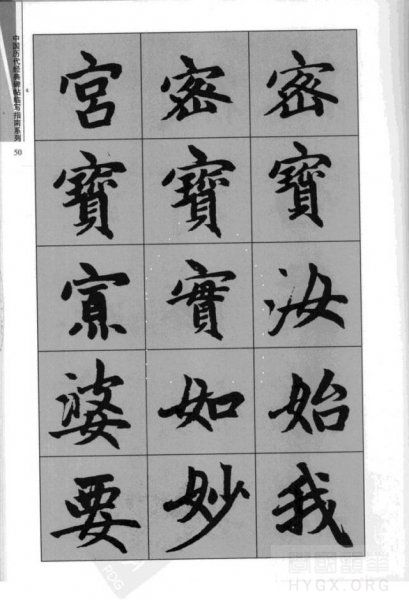 中国历代经典碑帖临写指南系列
50
宮密密
寶寶寶
實汝
婆如始
要妙我
PDG
HYGX.ORG